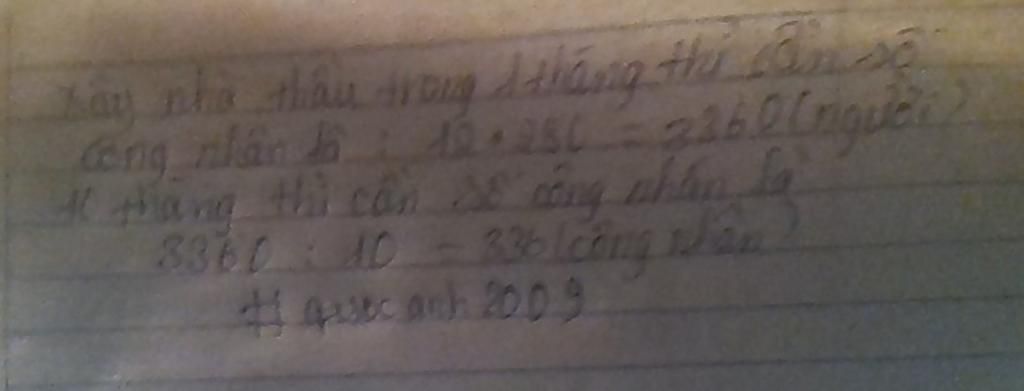 xây nhà thầu trong 1 tháng thì cần số
công nhân là : 12 . 280 = 3360 (người)
10 tháng thì cần số công nhân là
3360 : 10 = 336 (công nhân)
# quocanh 2009